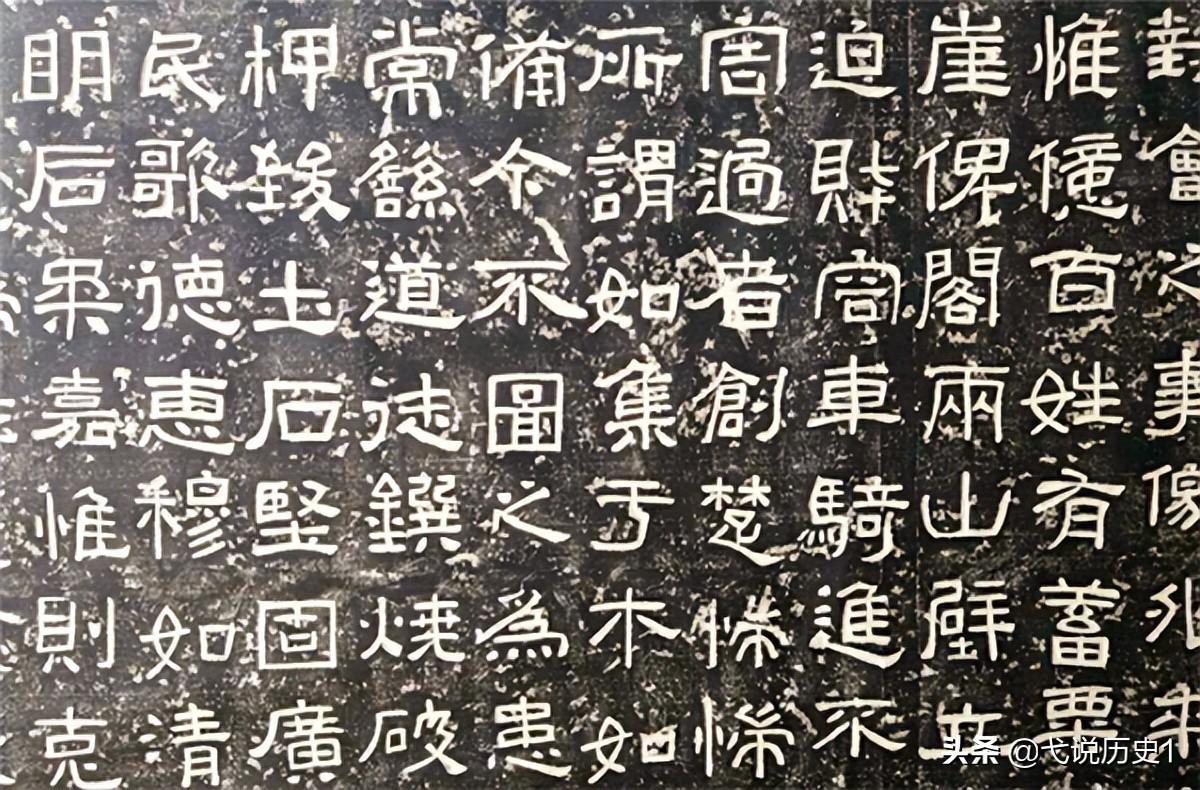 對會之事徼外來
惟億百姓有蓄粟
崖俾閣兩山壁立
迫財容車騎進不
害過者創楚惴惴
所謂如集于木如
備今不圖之為患
常繇道徒鐉燒破
柙致土石堅固廣
民歌德惠穆如清
明后柔嘉惟則克
头条 @弋说历史1